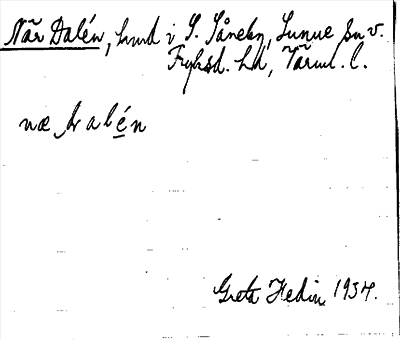 När Dalén, hmd i S. Såneby, Sunne sn v.
Fryksd. hd, Värml. l.
næ̨ dalén
Greta Hedin 1934.